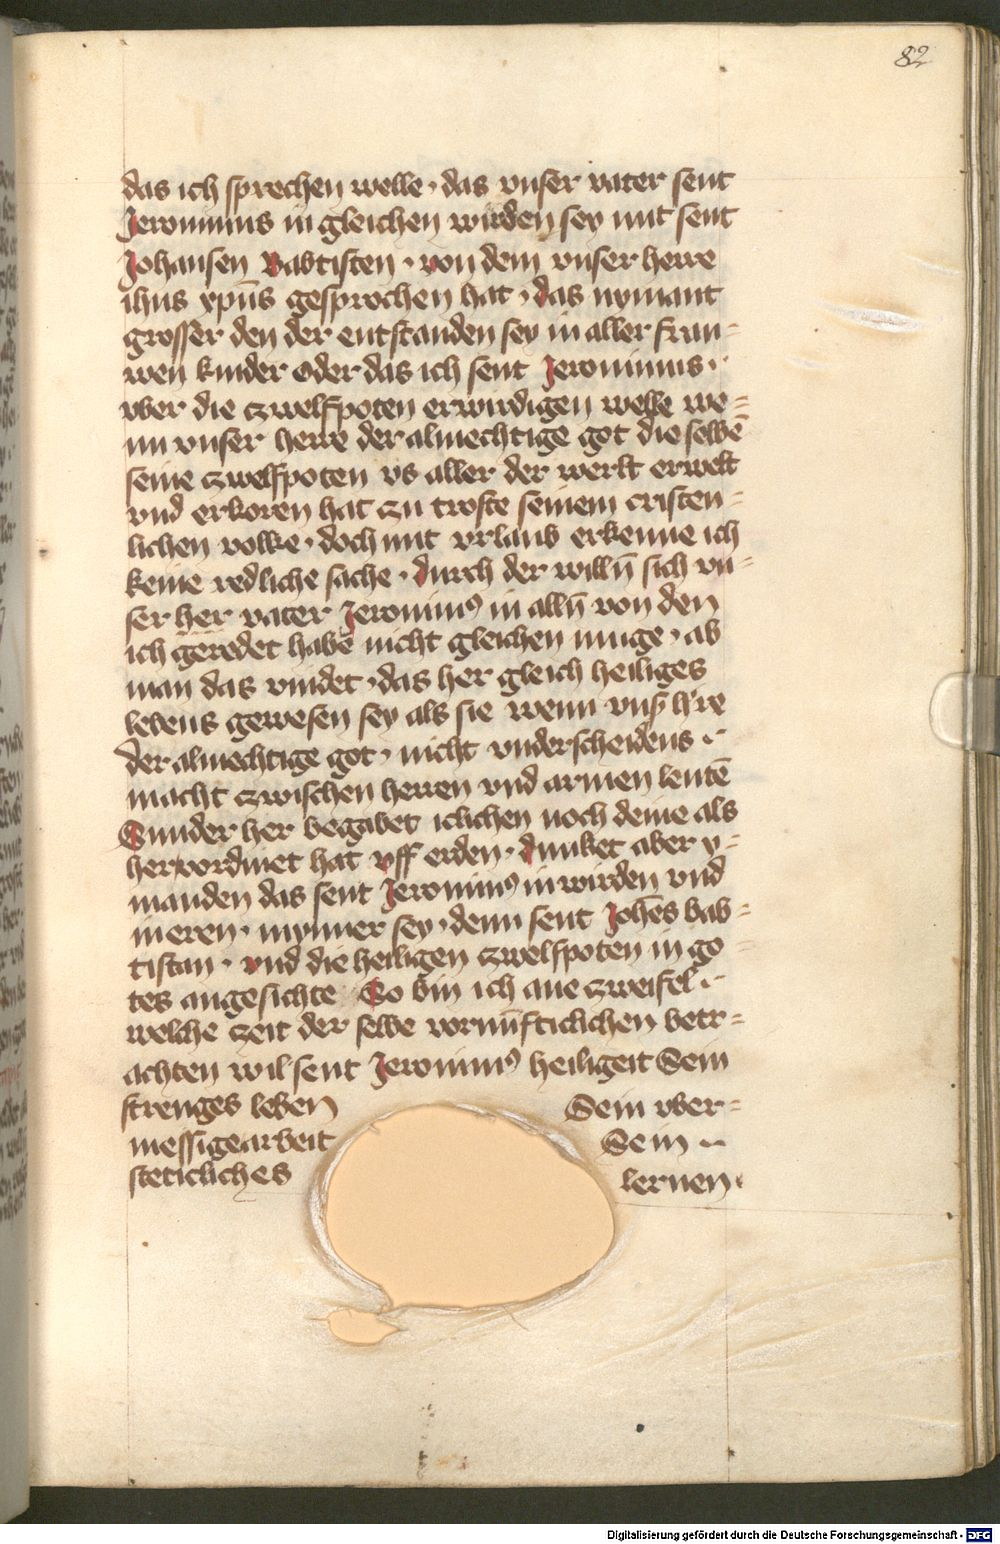 82
das ich sprechen welle · das vnser vater sent
Jeronimus in gleichen wirden sey mit sent
Johansen Babtisten · von dem vnser herre
ihus xpūs gesprochen hat · das nymant
grosser den der entstanden sey in aller frau=
wen kinder Oder das ich sent Jeronimus ·
vber die czwelfpoten erwirdigen welle we=
nn vnser herre der almechtige got die selbē
seine czwelfpoten vs aller der werlt erwelt
vnd erkoren hat zu troste seinem cristen=
lichen volke · doch mit vrlaub erkenne ich
keine redliche sache · durch der willn̄ sich vn=
ser her vater Jeronimꝰ in alln̄ von den
ich geredet habe nicht gleichen muge · ab
man das vindet · das her gleich heiliges
lebens gewesen sey als sie wenn vnsʼ hʼre
der almechtige got · nicht vnderscheidens ·
macht czwischen herren vnd armen leutē
Sunder her begabet iclichen noch deme als
her vordinet hat vff erden · dunket aber y=
manden das sent Jeronimꝰ in wirden vnd
in eren · mynner sey · denn sent Johēs bab=
tistan · vnd die heiligen czwelfpoten in go
tes angesichte So bin ich ane zweifel ·
welche zeit der selbe vornūfticlichen betr=
achten wil sent Jeronimꝰ heiligeit Sein
strenges leben Sein vber=
messige arbeit Sein
steticliches lernen ·
Digitalisierung gefördert durch die Deutsche Forschungsgemeinschaft - DFG